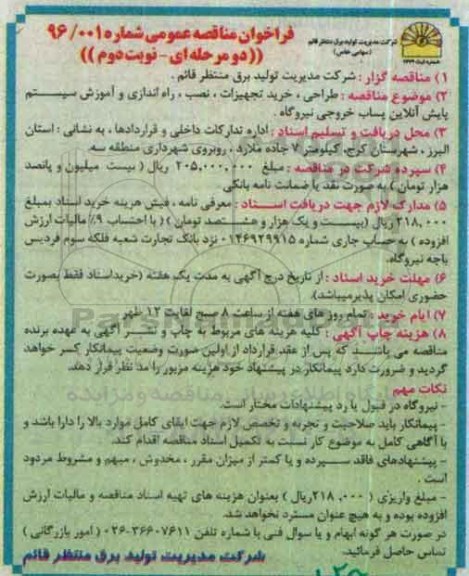 فراخوان مناقصه عمومی شماره ۹۶/۰۰۱
((دو مرحله ای - نوبت دوم))
شرکت مدیریت تولید برق منتظر قائم
(سهامی خاص)
۱) مناقصه گزار : شرکت مدیریت تولید برق منتظر قائم .
۲) موضوع مناقصه : طراحی ، خرید تجهیزات ، نصب ، راه اندازی و آموزش سیستم
پایش آنلاین پساب خروجی نیروگاه .
۳) محل دریافت و تسلیم اسناد : اداره تدارکات داخلی و قراردادها ، به نشانی : استان
البرز ، شهرستان کرج، کیلومتر ۷ جاده ملارد ، روبروی شهرداری منطقه سه.
۴) سپرده شرکت در مناقصه : مبلغ ۲۰۵,۰۰۰,۰۰۰ ریال ( بیست میلیون و پانصد
هزار تومان ) به صورت نقد یا ضمانت نامه بانکی
۵) مدارک لازم جهت دریافت اسناد : معرفی نامه ، فیش هزینه خرید اسناد بمبلغ
۲۱۸,۰۰۰ ریال (بیست و یک هزار و هشتصد تومان ) ( با احتساب ۹٪ مالیات ارزش
افزوده ) به حساب جاری شماره ۰۱۴۶۹۲۹۹۱۵ نزد بانک تجارت شعبه فلکه سوم فردیس
باجه نیروگاه.
۶) مهلت خرید اسناد : از تاریخ درج آگهی به مدت یک هفته (خریداسناد فقط بصورت
حضوری امکان پذیرمیباشد).
۷) ایام خرید : تمام روز های هفته از ساعت ۸ صبح لغایت ۱۲ ظهر
۸) هزینه چاپ آگهی : کلیه هزینه های مربوط به چاپ و نشر آگهی به عهده برنده
مناقصه می باشد که پس از عقد قرارداد از اولین صورت وضعیت پیمانکار کسر خواهد
گردید و ضرورت دارد پیمانکار در پیشنهاد خود هزینه مزبور را مد نظر قرار دهد.
نکات مهم
- نیروگاه در قبول یا رد پیشنهادات مختار است.
- پیمانکار باید صلاحیت و تجربه و تخصص لازم جهت ایفای کامل موارد بالا را دارا باشد و
با آگاهی کامل به موضوع کار نسبت به تکمیل اسناد مناقصه اقدام کند.
- پیشنهادهای فاقد سپرده و یا کمتر از میزان مقرر ، مخدوش ، مبهم و مشروط مردود
است .
- مبلغ واریزی ( ۲۱۸,۰۰۰ریال ) بعنوان هزینه های تهیه اسناد مناقصه و مالیات ارزش
افزوده بوده و به هیچ عنوان مسترد نخواهد شد.
در صورت هر گونه ابهام و یا سوال فنی با شماره تلفن ۳۶۶۰۷۶۱۱-۰۲۶ ( امور بازرگانی )
تماس حاصل فرمائید.
شرکت مدیریت تولید برق منتظر قائم